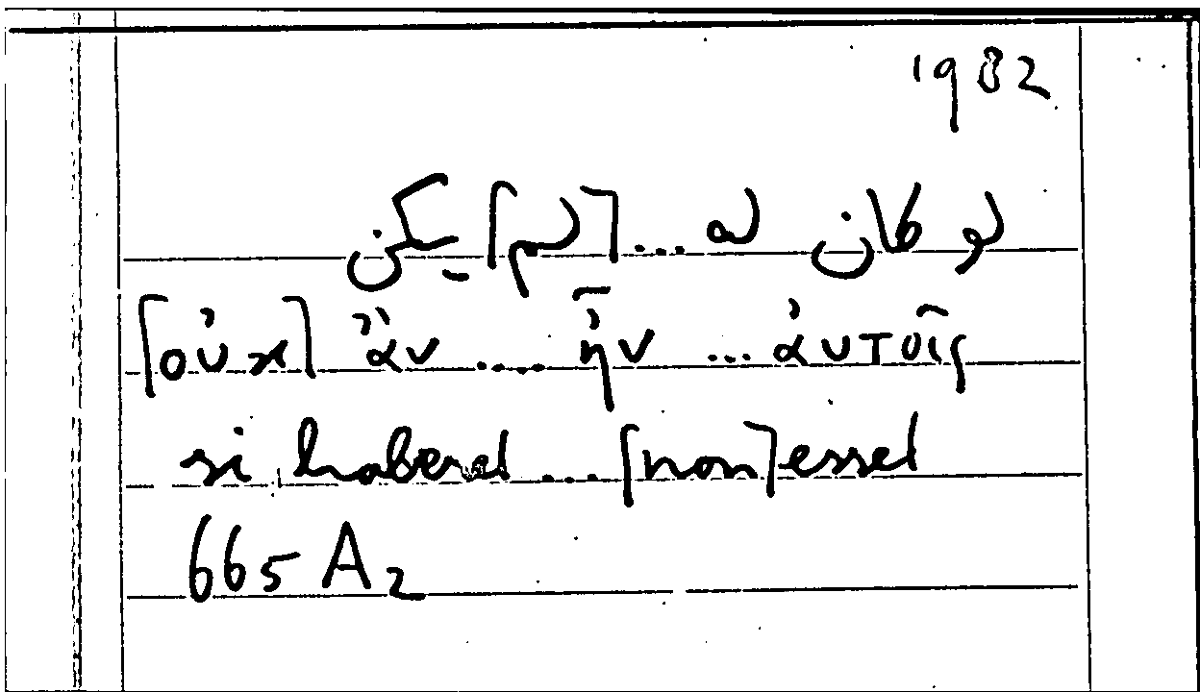 1982
لو كان له ... [لم] يكن
[οὐχ] ἂν .... ἦν ... αὐτοῖς
si haberet ... [non] esset
665 A2